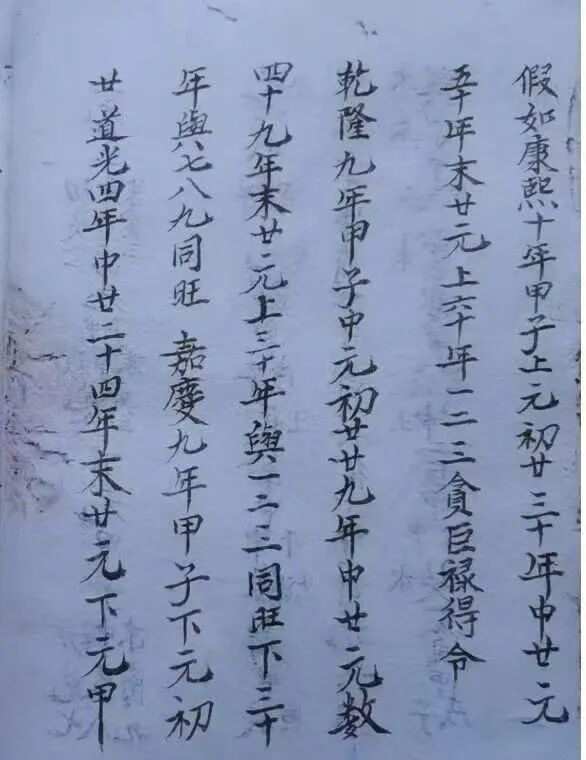 假如康熙十年甲子上元初廿三十年中廿元
五十年末廿元上六十年一二三貪巨禄得令
乾隆九年甲子中元初廿廿九年中廿元数
四十九年末廿元上三十年與一二三同旺下三十
年與六七八九同旺 嘉慶九年甲子下元初
廿道光四年中廿二十四年末廿元下元甲